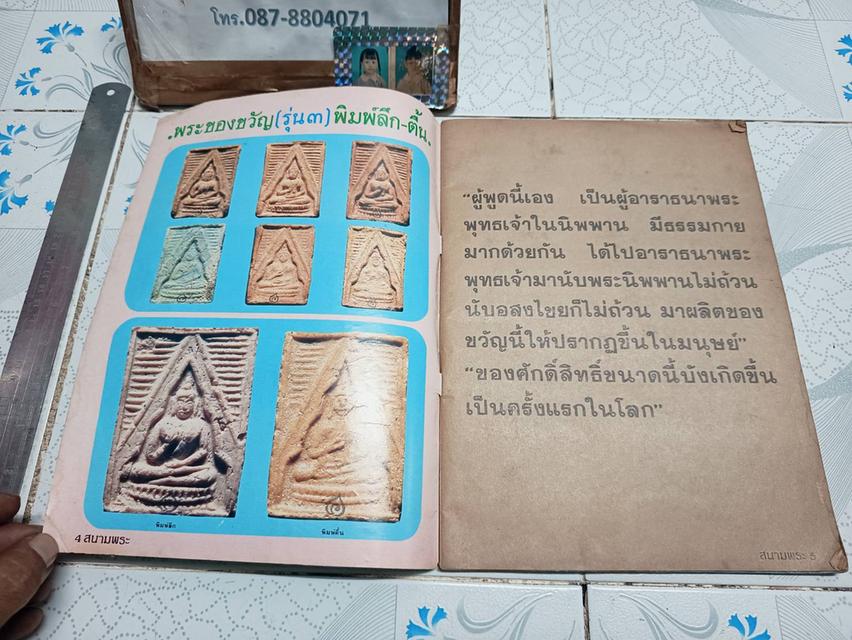 โทร.087-8804071
.พระของขวัญ(รุ่น๓)พิมพ์ลึก-ตื้น.
พิมพ์ลึก
พิมพ์ตื้น
4 สนามพระ
“ผู้พูดนี้เอง เป็นผู้อาราธนาพระ
พุทธเจ้าในนิพพาน มีธรรมกาย
มากด้วยกัน ได้ไปอาราธนาพระ
พุทธเจ้ามานับพระนิพพานไม่ถ้วน
นับอสงไขยก็ไม่ถ้วน มาผลิตของ
ขวัญนี้ให้ปรากฏขึ้นในมนุษย์”
“ของศักดิ์สิทธิ์ขนาดนี้บังเกิดขึ้น
เป็นครั้งแรกในโลก”
สนามพระ 5